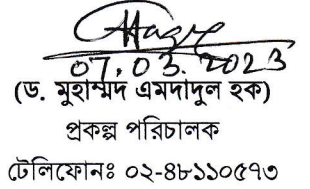 07.03.2023
(ড. মুহাম্মদ এমদাদুল হক)
প্রকল্প পরিচালক
টেলিফোনঃ ০২-৪৮১১০৫৭৩